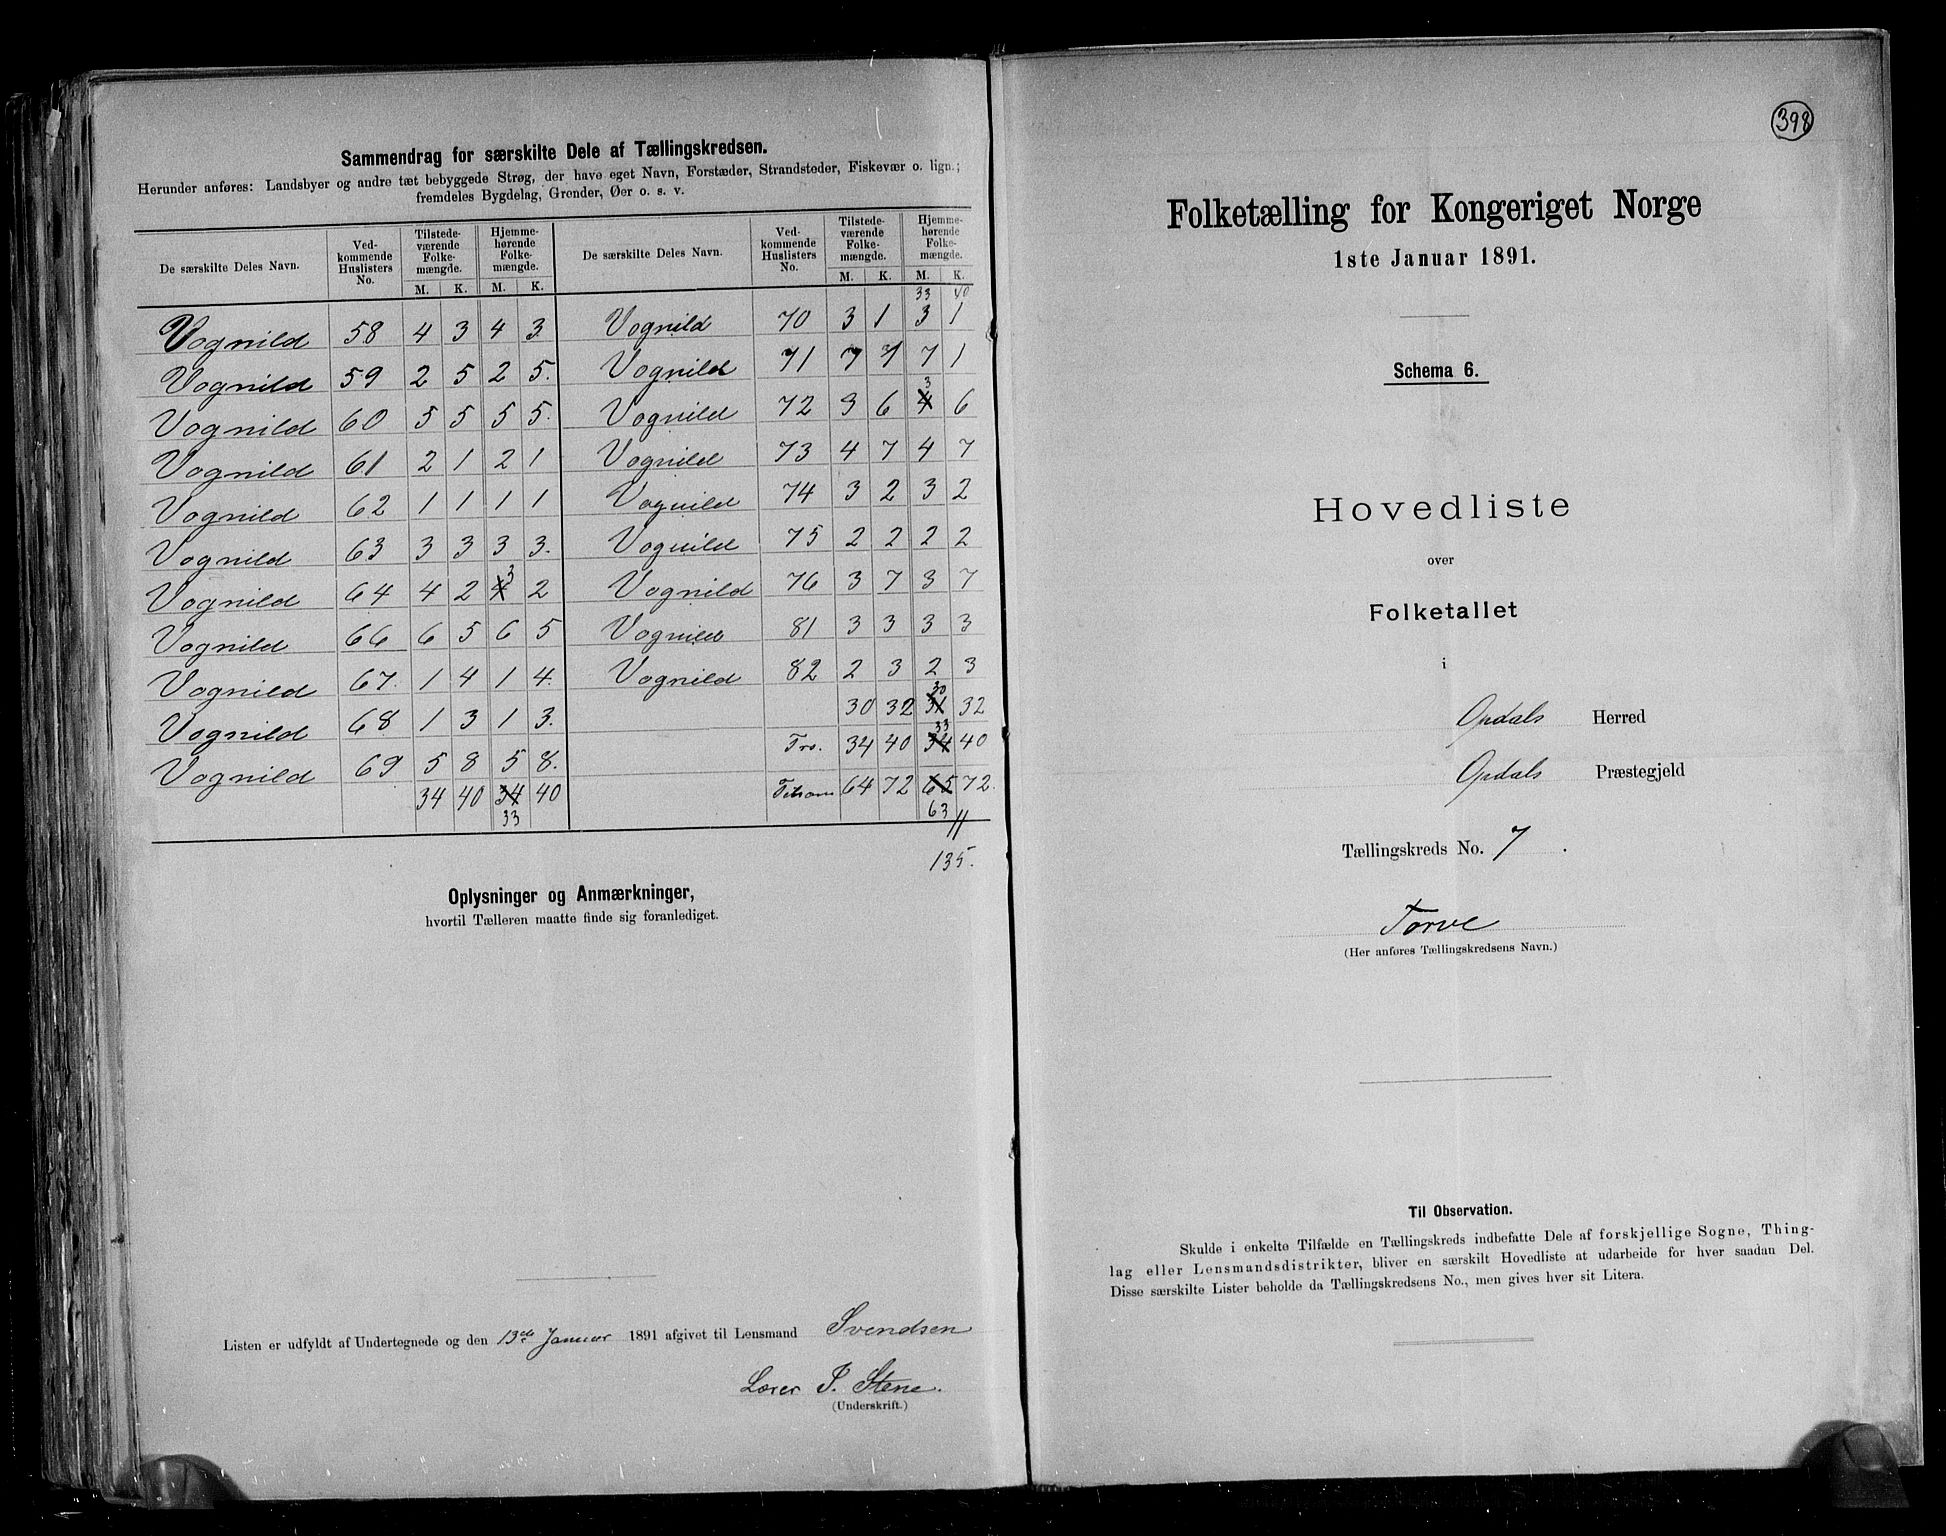 Sammendrag for særskilte Dele af Tællingskredsen.
Herunder anføres: Landsbyer og andre tæt bebyggede Strøg, der have eget Navn, Forstæder, Strandsteder, Fiskevær o. lign.;
fremdeles Bygdelag, Grender, Øer o. s. v.
De særskilte Deles Navn. Ved-kommende Huslisters No. Tilstede-værende Folke-mængde. M. K. Hjemme-hørende Folke-mængde. M. K. De særskilte Deles Navn. Ved-kommende Huslisters No. Tilstede-værende Folke-mængde. M. K. Hjemme-hørende Folke-mængde. M. K.
33 40
Vognild 58 4 3 4 3 Vognild 70 3 1 3 1
Vognild 59 2 5 2 5. Vognild 71 7 7 7 1
Vognild 60 5 5 5 5. Vognild 72 3 6 4 3 6
Vognild 61 2 1 2 1 Vognild 73 4 7 4 7
Vognild 62 1 1 1 1 Vognild 74 3 2 3 2
Vognild 63 3 3 3 3. Vognild 75 2 2 2 2
Vognild 64 4 2 4 3 2 Vognild 76 3 7 3 7
Vognild 66 6 5 6 5 Vognild 81 3 3 3 3
Vognild 67. 1 4 1 4. Vognild 82 2 3 2 3
Vognild 68 1 3 1 3. 30 32 31 30 32
Vognild 69 5 8 5 8. Tro. 34 40 34 33 40
34 40 34 33 40 Tilsam 64 72 65 63 72.
135.
Oplysninger og Anmærkninger,
hvortil Tælleren maatte finde sig foranlediget.
Listen er udfyldt af Undertegnede og den 13de Januar 1891 afgivet til Lensmand Svendsen
Lærer I. Stene.
(Underskrift.)
398
Folketælling for Kongeriget Norge
1ste Januar 1891.
Schema 6.
Hovedliste
over
Folketallet
i
Opdals Herred
Opdals Præstegjeld
Tællingskreds No. 7.
Torve
(Her anføres Tællingskredsens Navn.)
Til Observation.
Skulde i enkelte Tilfælde en Tællingskreds indbefatte Dele af forskjellige Sogne, Thing-
lag eller Lensmandsdistrikter, bliver en særskilt Hovedliste at udarbeide for hver saadan Del.
Disse særskilte Lister beholde da Tællingskredsens No., men gives hver sit Litera.